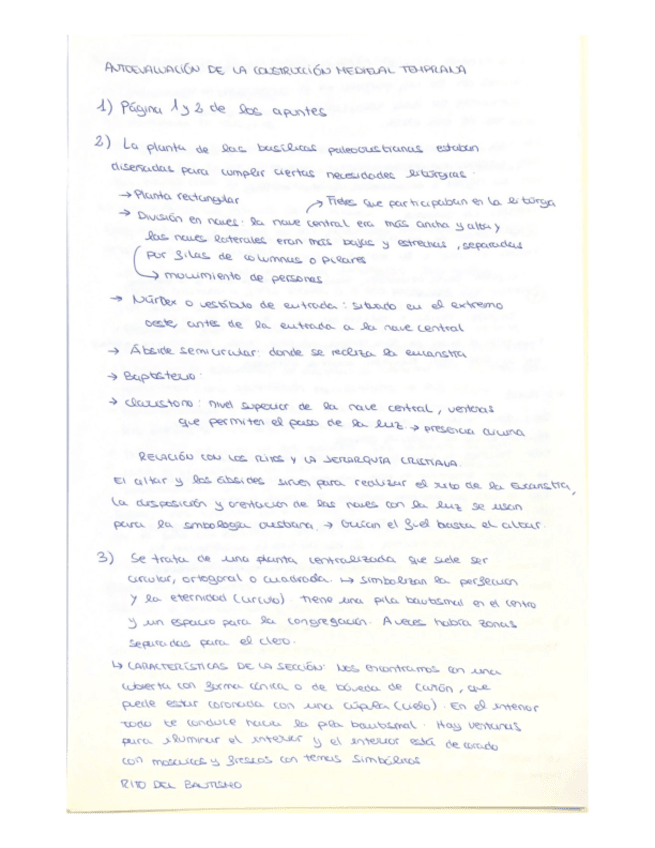 AUTOEVALUACIÓN DE LA CONSTRUCCIÓN MEDIEVAL TEMPRANA
1) Página 1 y 2 de los apuntes
2) La planta de las basílicas paleocristianas estaban
diseñadas para cumplir ciertas necesidades litúrgicas.
→ Planta rectangular
→ Fieles que participaban en la liturgia
→ División en naves: la nave central era más ancha y alta y
las naves laterales eran más bajas y estrechas, separadas
por filas de columnas o pilares
→ movimiento de personas
→ Nártex o vestíbulo de entrada: situado en el extremo
oeste, antes de la entrada a la nave central
→ Ábside semicircular: donde se realiza la eucaristía
→ Baptisterio.
→ claristorio: nivel superior de la nave central, ventanas
que permiten el paso de la luz → presencia divina
RELACIÓN CON LOS RITOS Y LA JERARQUÍA CRISTIANA
El altar y los ábsides sirven para realizar el rito de la Eucaristía,
la disposición y orientación de las naves con la luz se usan
para la simbología cristiana → Guían el fiel hasta el altar.
3) Se trata de una planta centralizada que suele ser
circular, ortogonal o cuadrada. ↳ simbolizan la perfección
y la eternidad (círculo). Tiene una pila bautismal en el centro
y un espacio para la congregación. A veces había zonas
separadas para el clero.
↳ CARACTERÍSTICAS DE LA SECCIÓN: Nos encontramos con una
cubierta con forma cónica o de bóveda de cañón, que
puede estar coronada con una cúpula (cielo). En el interior
todo te conduce hacia la pila bautismal. Hay ventanas
para iluminar el interior y el interior está decorado
con mosaicos y frescos con temas simbólicos
RITO DEL BAUTISMO